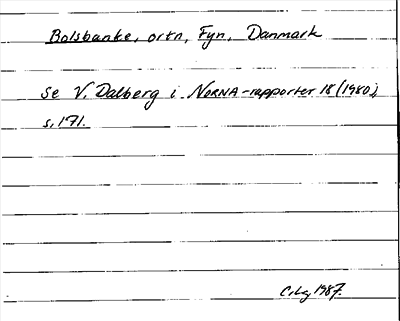 Bolsbanke, ortn, Fyn, Danmark
Se V. Dalberg i NORNA-rapporter 18 (1980),
s. 171.
1987.